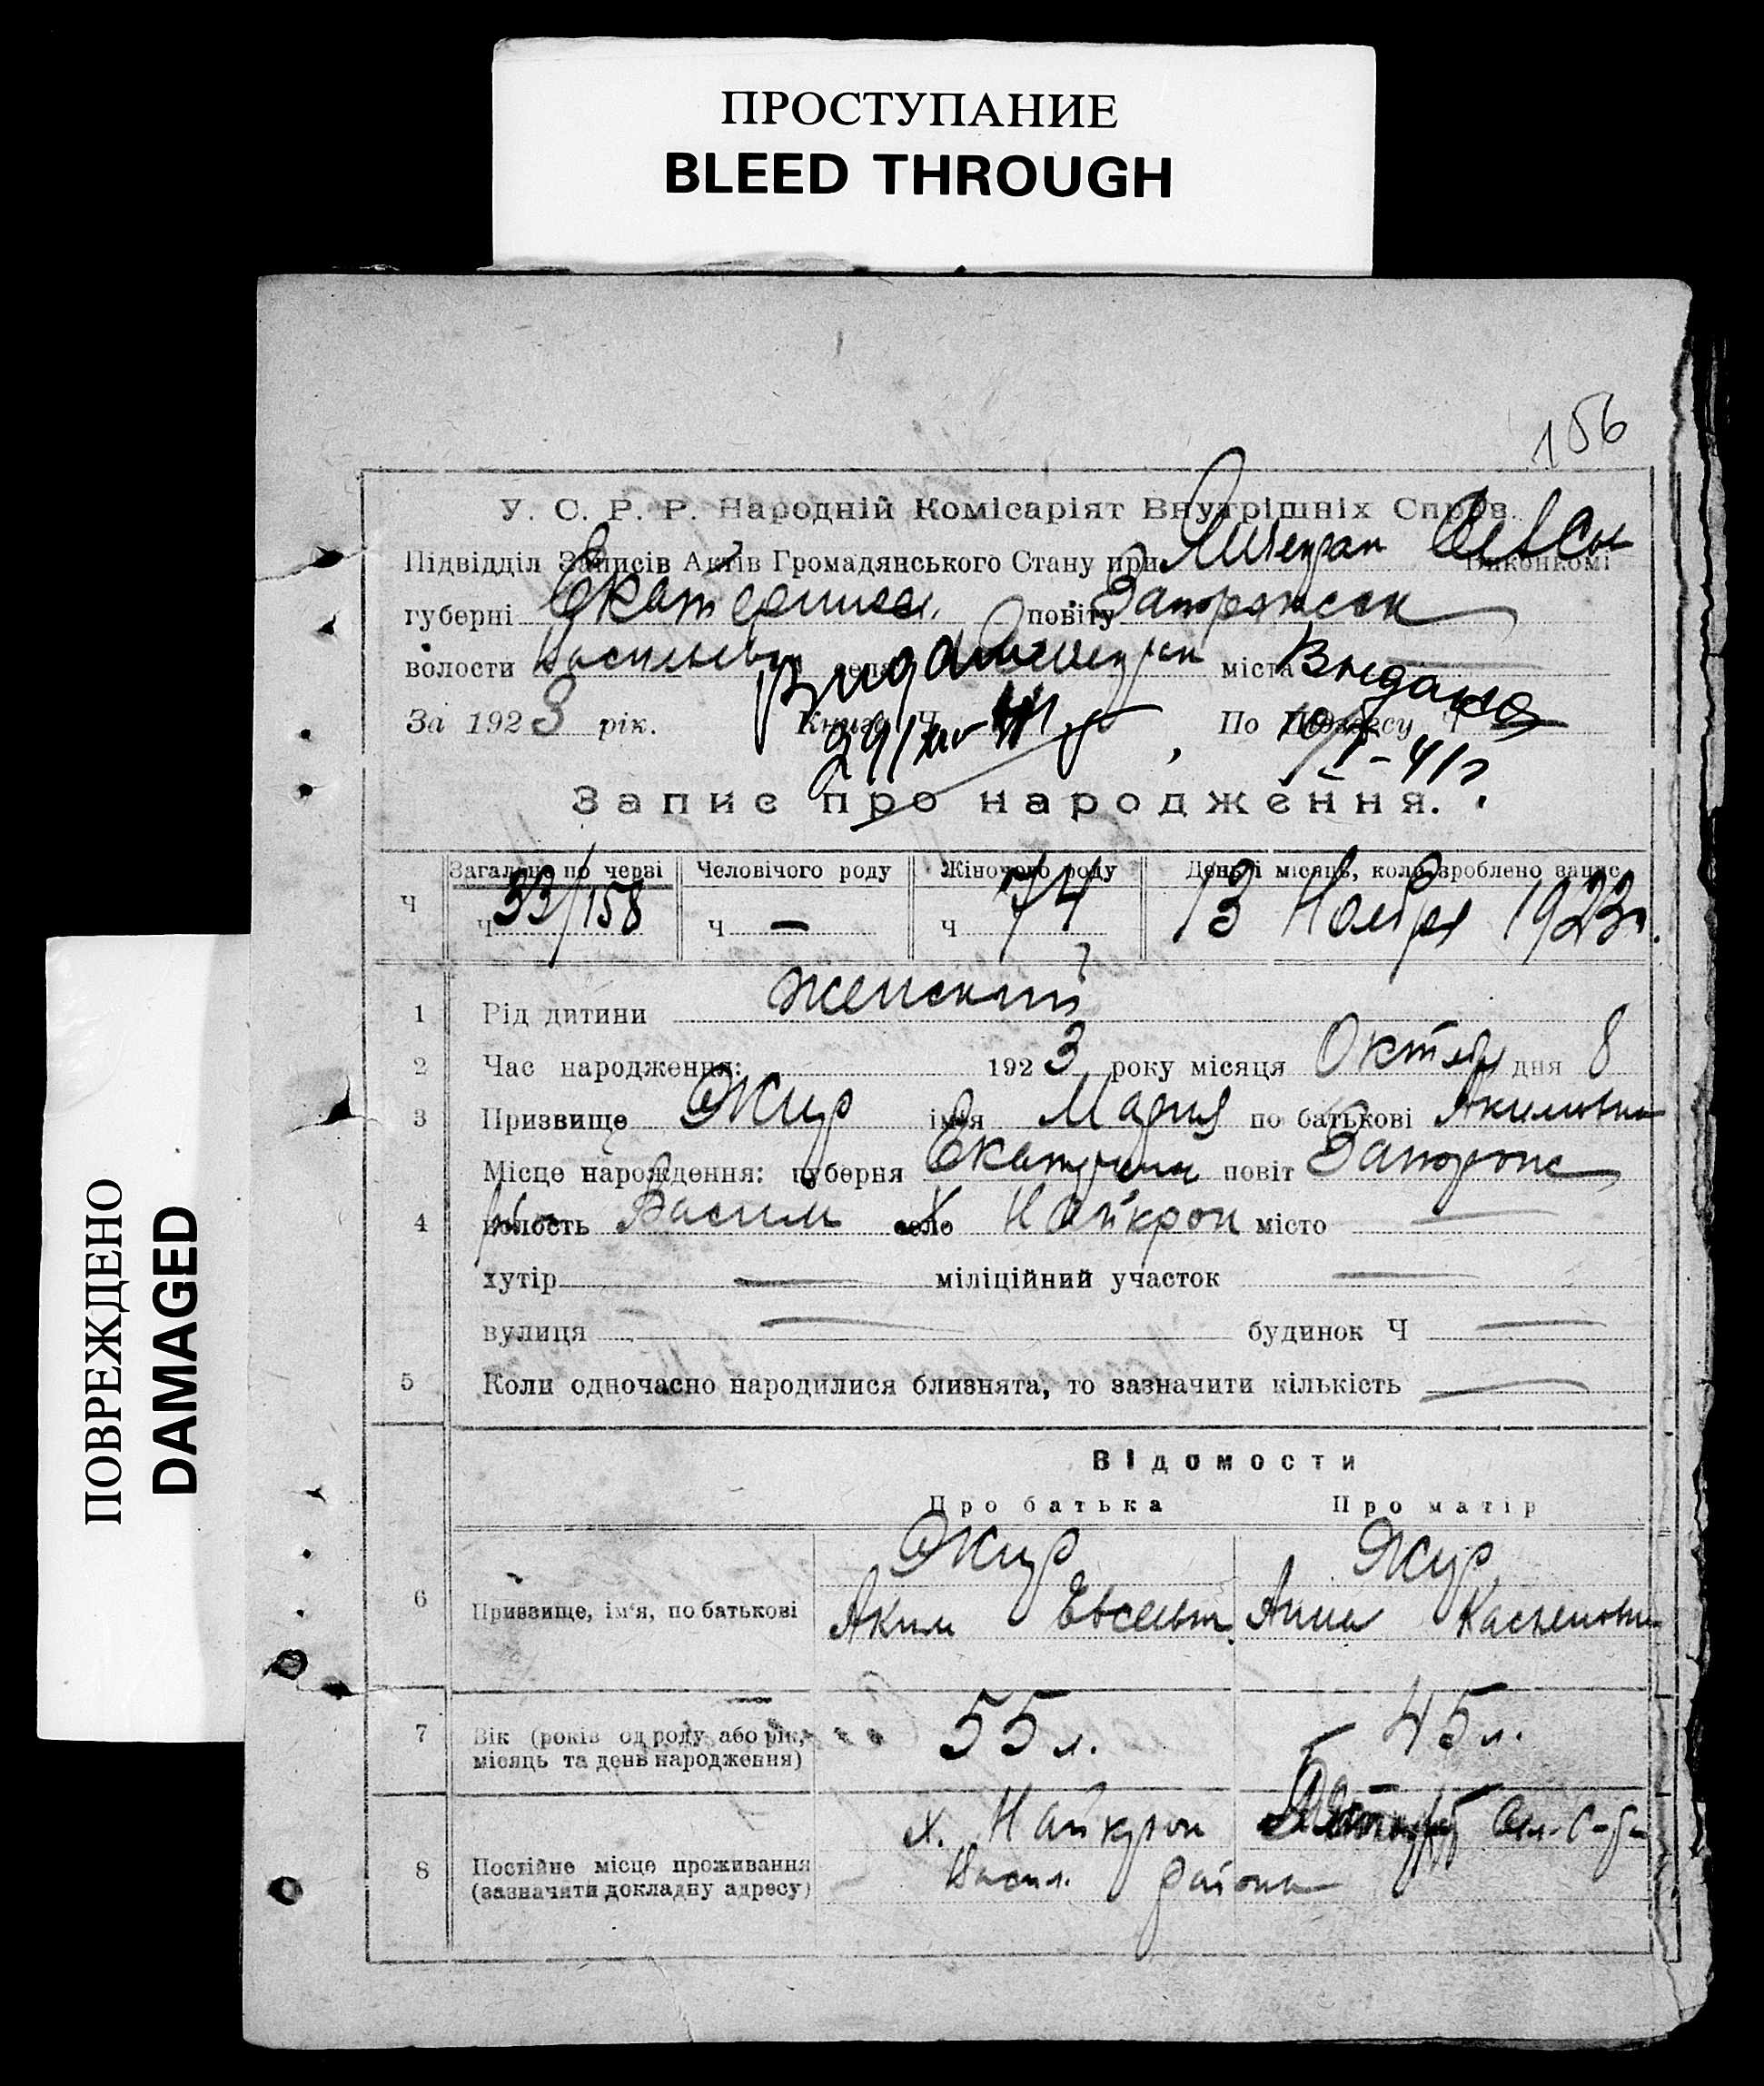 ПРОСТУПАНИЕ
BLEED THROUGH
ПОВРЕЖДЕНО
DAMAGED
156
У. С. Р. Р. Народній Комісаріят Внутрішніх Справ.
Підвідділ Записів Актів Громадянського Стану при Виконкомі
губерні повіту
волости міста Выдано
За 1923 рік. Книга Ч. По Ч
Запис про народження.
Загально по черзі Человічого роду Жіночого роду День і місяць, коли зроблено запис
Ч Ч 33/158 Ч — Ч 74 13 Ноября 1923г.
1 Рід дитини женский
2 Час народження: 1923 року місяця Октябр дня 8
3 Призвище Жир ім'я Мария по батькові Акимовна
Місце народження: губерня повіт
4 волость Васили село Х Найкрон місто —
хутір — міліційний участок —
вулиця — будинок Ч —
5 Коли одночасно народилися близнята, то зазначити кількість —
Відомости
Про батька Про матір
Жир Жир
6 Призвище, ім'я, по батькові Аким Евсеевич Анна
7 Вік (років од роду або рік, місяць та день народження) 55 л. 45 л.
8 Постійне місце проживання (зазначити докладну адресу) х. Найкрон
Васил. района